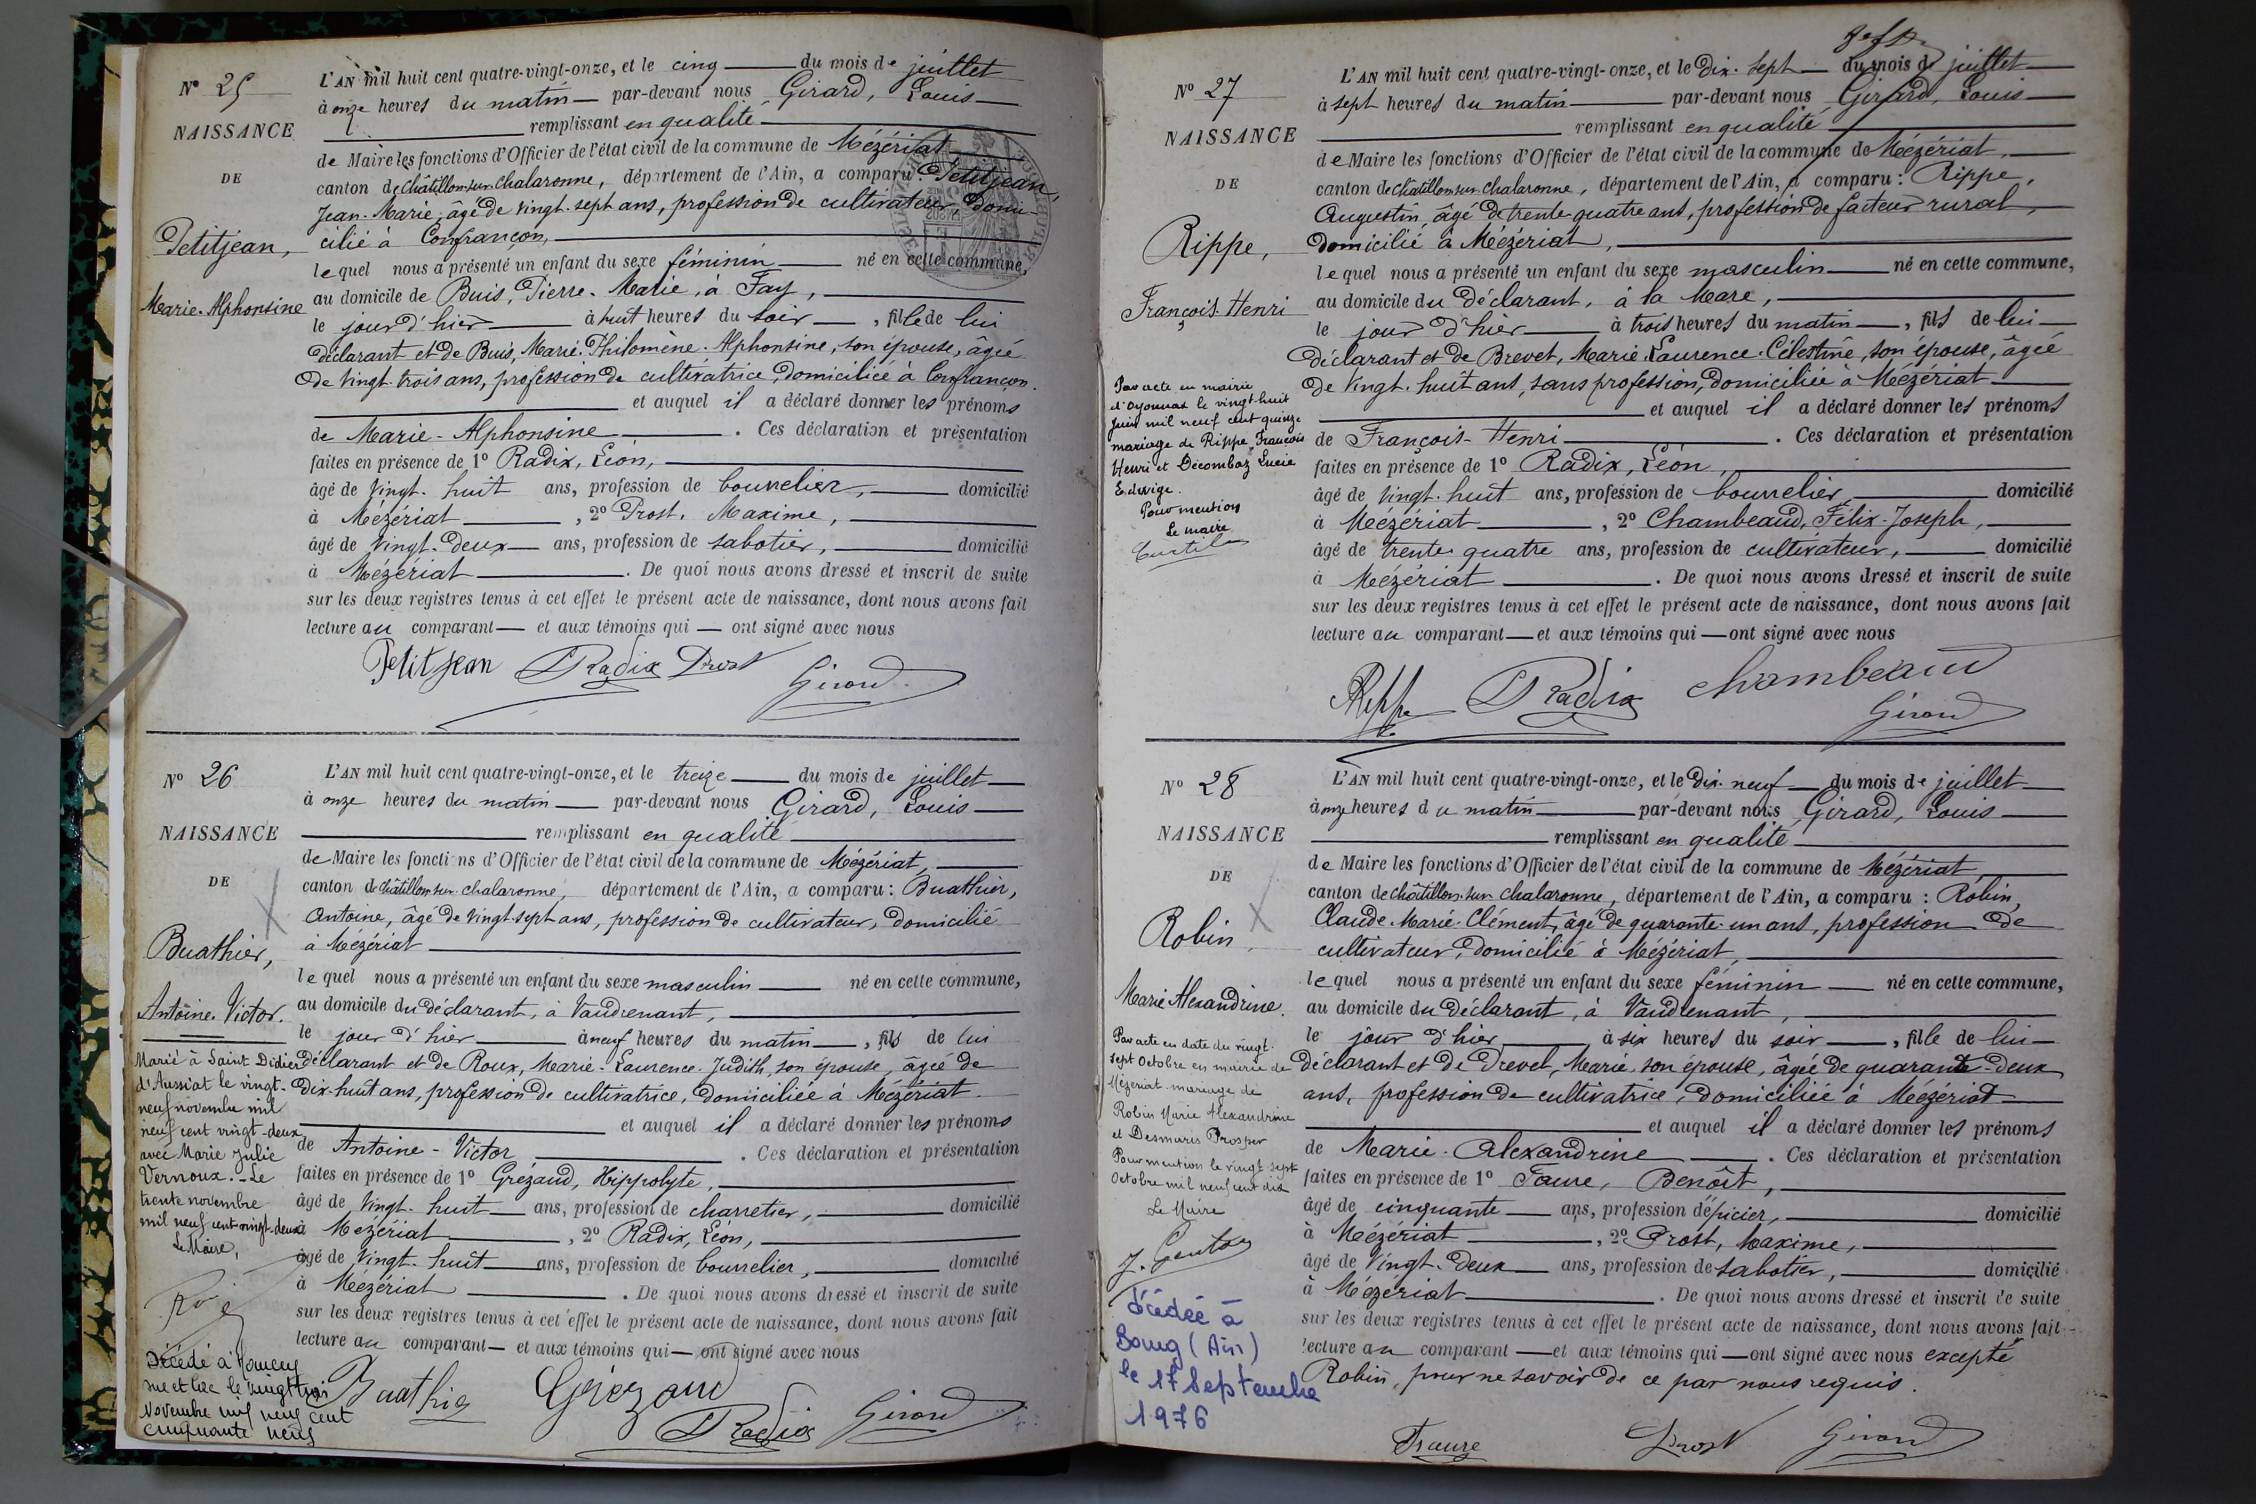 N° 25
NAISSANCE
DE
Petitjean,
Marie-Alphonsine
L'AN mil huit cent quatre-vingt-onze, et le cinq du mois de juillet
à onze heures du matin par-devant nous Girard, Louis
remplissant en qualité
de Maire les fonctions d'Officier de l'état civil de la commune de Mézériat
canton de Châtillon-sur-Chalaronne, département de l'Ain, a comparu Petitjean,
Jean-Marie, âgé de vingt-sept ans, profession de cultivateur, domi-
cilié à Confrançon,
lequel nous a présenté un enfant du sexe féminin né en cette commune,
au domicile de Buis, Pierre-Marie, à Fay,
le jour d'hier à huit heures du soir, fille de lui
déclarant et de Buis, Marie-Philomène-Alphonsine, son épouse, âgée
de vingt-trois ans, profession de cultivatrice, domiciliée à Confrançon.
et auquel il a déclaré donner les prénoms
de Marie-Alphonsine. Ces déclaration et présentation
faites en présence de 1° Radix, Léon,
âgé de vingt-huit ans, profession de bourrelier, domicilié
à Mézériat, 2° Prost, Maxime,
âgé de vingt-deux ans, profession de sabotier, domicilié
à Mézériat. De quoi nous avons dressé et inscrit de suite
sur les deux registres tenus à cet effet le présent acte de naissance, dont nous avons fait
lecture au comparant et aux témoins qui ont signé avec nous
Petitjean Radix Prost Girard
N° 26
NAISSANCE
DE
Buathier,
Antoine-Victor.
Marié à Saint Didier
d'Aussiat le vingt-
neuf novembre mil
neuf cent vingt-deux
avec Marie Julie
Vernoux. - Le
trente novembre
mil neuf cent vingt-deux
Le Maire,
Décédé à
le vingt trois
Novembre mil neuf cent
cinquante neuf
L'AN mil huit cent quatre-vingt-onze, et le treize du mois de juillet
à onze heures du matin par-devant nous Girard, Louis
remplissant en qualité
de Maire les fonctions d'Officier de l'état civil de la commune de Mézériat,
canton de Châtillon-sur-Chalaronne, département de l'Ain, a comparu: Buathier,
Antoine, âgé de vingt-sept ans, profession de cultivateur, domicilié
à Mézériat
lequel nous a présenté un enfant du sexe masculin né en cette commune,
au domicile du déclarant, à Vaudrenant,
le jour d'hier à neuf heures du matin, fils de lui
déclarant et de Roux, Marie-Laurence-Judith, son épouse, âgée de
dix-huit ans, profession de cultivatrice, domiciliée à Mézériat.
et auquel il a déclaré donner les prénoms
de Antoine-Victor. Ces déclaration et présentation
faites en présence de 1° Grézaud, Hippolyte,
âgé de vingt-huit ans, profession de charretier, domicilié
à Mézériat, 2° Radix, Léon,
âgé de vingt-huit ans, profession de bourrelier, domicilié
à Mézériat. De quoi nous avons dressé et inscrit de suite
sur les deux registres tenus à cet effet le présent acte de naissance, dont nous avons fait
lecture au comparant et aux témoins qui ont signé avec nous
Buathier Grézaud Radix Girard
N° 27
NAISSANCE
DE
Rippe,
François-Henri
Par acte en mairie
d'Oyonnax le vingt-huit
juin mil neuf cent quinze
mariage de Rippe François
Henri et Décomboz Lucie
Edwige.
Pour mention
Le maire
L'AN mil huit cent quatre-vingt-onze, et le dix-sept du mois de juillet
à sept heures du matin par-devant nous Girard, Louis
remplissant en qualité
de Maire les fonctions d'Officier de l'état civil de la commune de Mézériat,
canton de Châtillon-sur-Chalaronne, département de l'Ain, a comparu: Rippe,
Augustin, âgé de trente-quatre ans, profession de facteur rural,
domicilié à Mézériat,
lequel nous a présenté un enfant du sexe masculin né en cette commune,
au domicile du déclarant, à la Mare,
le jour d'hier à trois heures du matin, fils de lui
déclarant et de Brevet, Marie-Laurence-Célestine, son épouse, âgée
de vingt-huit ans, sans profession, domiciliée à Mézériat
et auquel il a déclaré donner les prénoms
de François-Henri. Ces déclaration et présentation
faites en présence de 1° Radix, Léon,
âgé de vingt-huit ans, profession de bourrelier, domicilié
à Mézériat, 2° Chambeaud, Félix-Joseph,
âgé de trente-quatre ans, profession de cultivateur, domicilié
à Mézériat. De quoi nous avons dressé et inscrit de suite
sur les deux registres tenus à cet effet le présent acte de naissance, dont nous avons fait
lecture au comparant et aux témoins qui ont signé avec nous
Rippe Radix Chambeaud
Girard
N° 28
NAISSANCE
DE
Robin,
Marie Alexandrine.
Par acte en date du vingt-
sept Octobre en mairie de
Mézeriat mariage de
Robin Marie Alexandrine
et Desmaris Prosper
Pour mention le vingt sept
Octobre mil neuf cent dix
Le Maire
décédée à
Bourg (Ain)
le 17 Septembre
1976
L'AN mil huit cent quatre-vingt-onze, et le dix-neuf du mois de juillet
à onze heures du matin par-devant nous Girard, Louis
remplissant en qualité
de Maire les fonctions d'Officier de l'état civil de la commune de Mézériat,
canton de Châtillon-sur-Chalaronne, département de l'Ain, a comparu : Robin,
Claude-Marie-Clément, âgé de quarante-un ans, profession de
cultivateur, domicilié à Mézériat,
lequel nous a présenté un enfant du sexe féminin né en cette commune,
au domicile du déclarant, à Vaudrenant,
le jour d'hier à six heures du soir, fille de lui
déclarant et de Drevet, Marie, son épouse, âgée de quarante-deux
ans, profession de cultivatrice, domiciliée à Mézériat
et auquel il a déclaré donner les prénoms
de Marie-Alexandrine. Ces déclaration et présentation
faites en présence de 1° Faure, Benoît,
âgé de cinquante ans, profession d'épicier, domicilié
à Mézériat, 2° Prost, Maxime,
âgé de vingt-deux ans, profession de sabotier, domicilié
à Mézériat. De quoi nous avons dressé et inscrit de suite
sur les deux registres tenus à cet effet le présent acte de naissance, dont nous avons fait
lecture au comparant et aux témoins qui ont signé avec nous excepté
Robin, pour ne savoir de ce par nous requis.
Faure Prost Girard